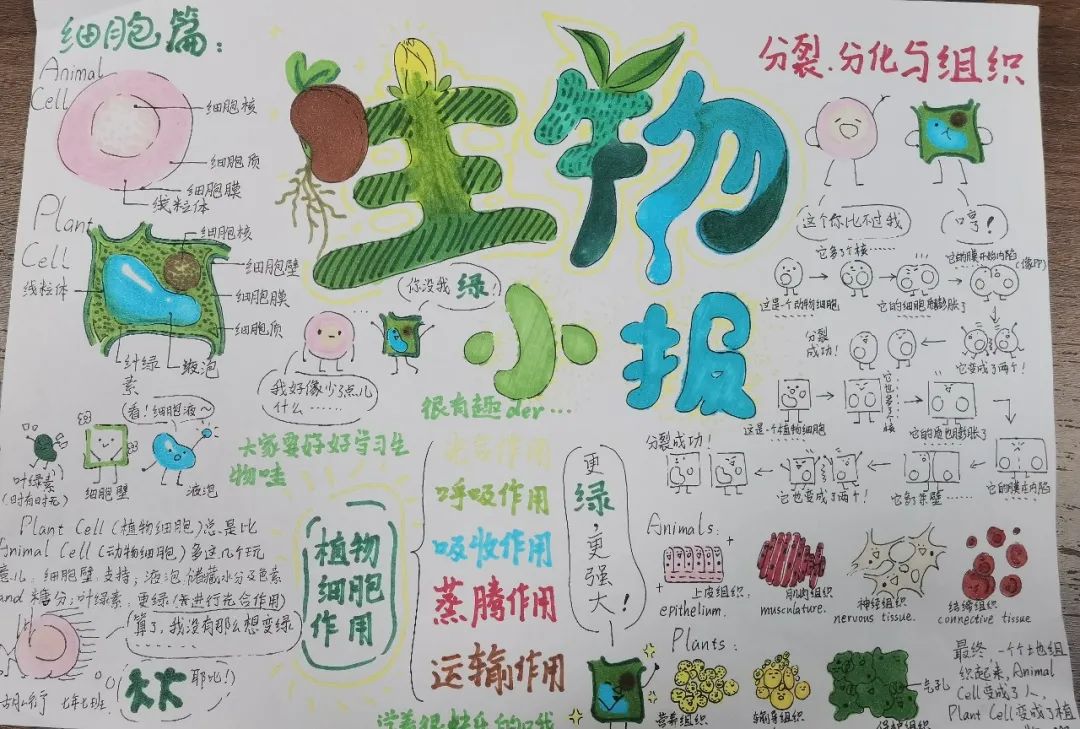 细胞篇：
Animal
Cell
细胞核
细胞质
细胞膜
线粒体
Plant
Cell
细胞核
细胞壁
细胞膜
细胞质
线粒体
叶绿素
液泡
生物
小报
你没我绿！
我好像少了点儿
什么……
很有趣der…
大家要好好学习生
物哇
看！细胞液～
叶绿素
(时有时无)
细胞壁
液泡
Plant Cell (植物细胞)总是比
Animal Cell (动物细胞)多这几个玩
意儿：细胞壁：支持；液泡：储藏水分及色素
and 糖分；叶绿素：更绿(来进行光合作用)
算了，我没有那么想变绿
……
耶比!
七年七班
植物
细胞
作用
光合作用
呼吸作用
吸收作用
蒸腾作用
运输作用
更绿，更强大！
分裂、分化与组织
这个你比不过我
哼！
这是一个动物细胞
它多了个核……
它的细胞质膨胀了
它的膜开始内陷
它变成了两个！
分裂
成功！
这是一个植物细胞
它也多了个核
它的质也膨胀了
它的膜在内陷
它也变成了两个！
分裂成功！
Animals:
上皮组织
epithelium.
肌肉组织
musculature.
神经组织
nervous tissue.
结缔组织
connective tissue
Plants:
营养组织
输导组织
保护组织
气孔
最终，一个个地组
织起来，Animal
Cell变成了人，
Plant Cell变成了植